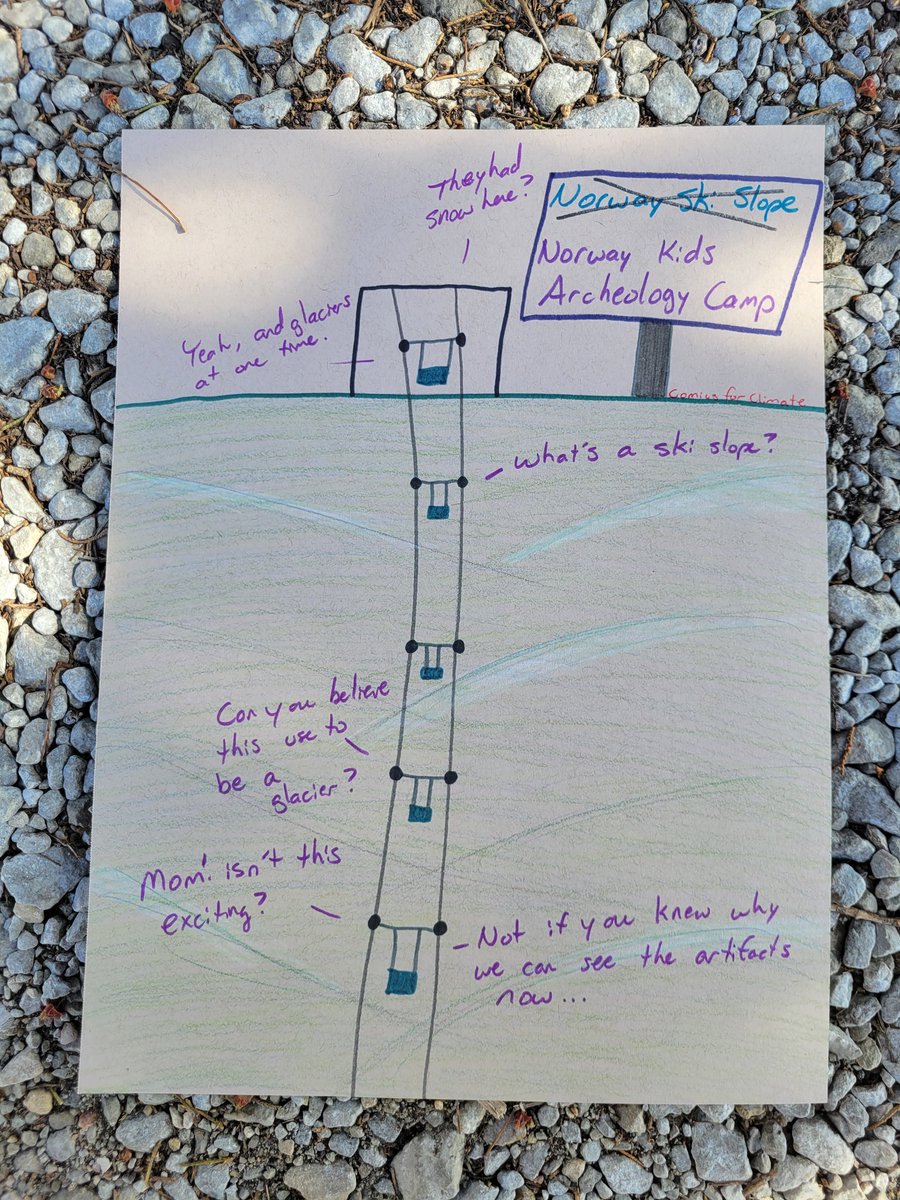 They had
snow here?
Norway Ski Slope
Norway Kids
Archeology Camp
Yeah, and glaciers
at one time.
Comics for Climate
What's a ski slope?
Can you believe
this use to
be a
glacier?
Mom! isn't this
exciting?
Not if you knew why
we can see the artifacts
now...